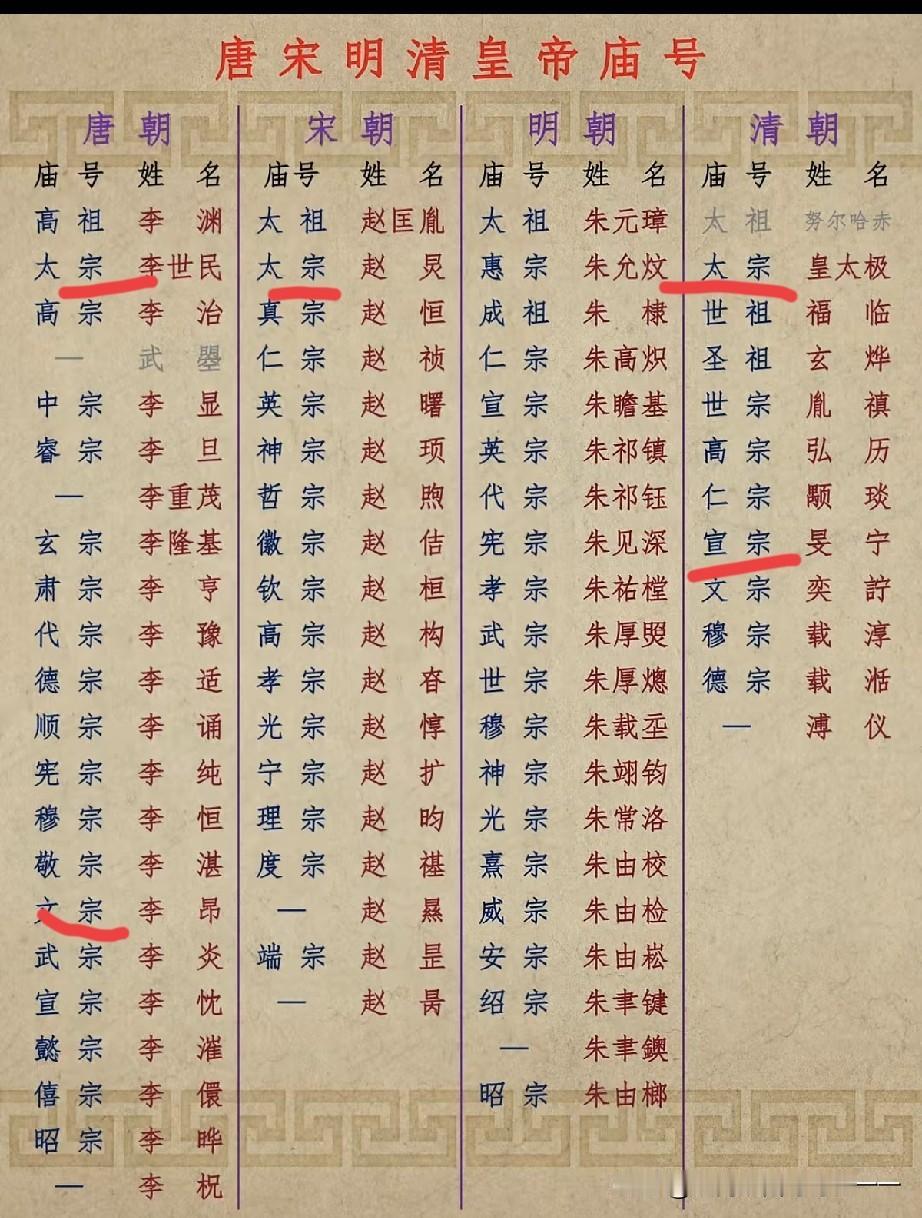 唐宋明清皇帝庙号
唐朝
庙号 姓名
高祖 李渊
太宗 李世民
高宗 李治
— 武曌
中宗 李显
睿宗 李旦
— 李重茂
玄宗 李隆基
肃宗 李亨
代宗 李豫
德宗 李适
顺宗 李诵
宪宗 李纯
穆宗 李恒
敬宗 李湛
文宗 李昂
武宗 李炎
宣宗 李忱
懿宗 李漼
僖宗 李儇
昭宗 李晔
— 李柷
宋朝
庙号 姓名
太祖 赵匡胤
太宗 赵炅
真宗 赵恒
仁宗 赵祯
英宗 赵曙
神宗 赵顼
哲宗 赵煦
徽宗 赵佶
钦宗 赵桓
高宗 赵构
孝宗 赵昚
光宗 赵惇
宁宗 赵扩
理宗 赵昀
度宗 赵禥
— 赵㬎
端宗 赵昰
— 赵昺
明朝
庙号 姓名
太祖 朱元璋
惠宗 朱允炆
成祖 朱棣
仁宗 朱高炽
宣宗 朱瞻基
英宗 朱祁镇
代宗 朱祁钰
宪宗 朱见深
孝宗 朱祐樘
武宗 朱厚照
世宗 朱厚熜
穆宗 朱载坖
神宗 朱翊钧
光宗 朱常洛
熹宗 朱由校
威宗 朱由检
安宗 朱由崧
绍宗 朱聿键
— 朱聿鐭
昭宗 朱由榔
清朝
庙号 姓名
太祖 努尔哈赤
太宗 皇太极
世祖 福临
圣祖 玄烨
世宗 胤禛
高宗 弘历
仁宗 颙琰
宣宗 旻宁
文宗 奕詝
穆宗 载淳
德宗 载湉
— 溥仪